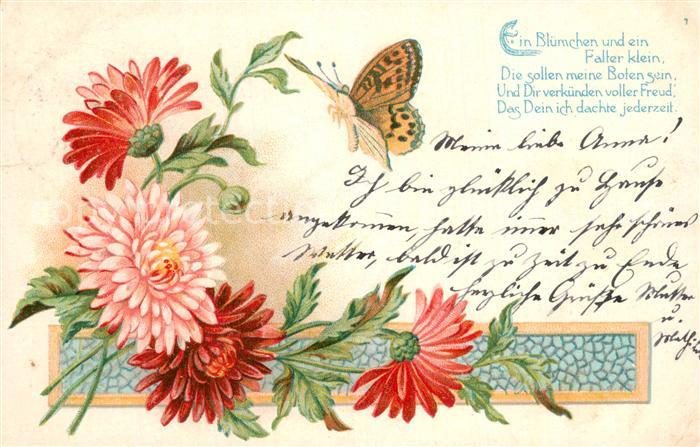 Ein Blümchen und ein
Falter klein,
Die sollen meine Boten sein,
Und Dir verkünden voller Freud,
Das Dein ich dachte jederzeit.
Meine liebe Anna!
Ich bin glücklich zu Hause
angekommen, hatte immer sehr schönes
Wetter, bald ist zu Zeit zu Ende
herzliche Grüße Mutter
u.